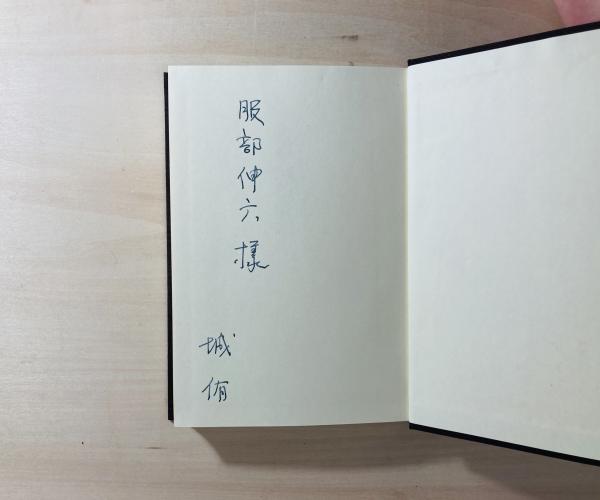 服部伸六様
城侑